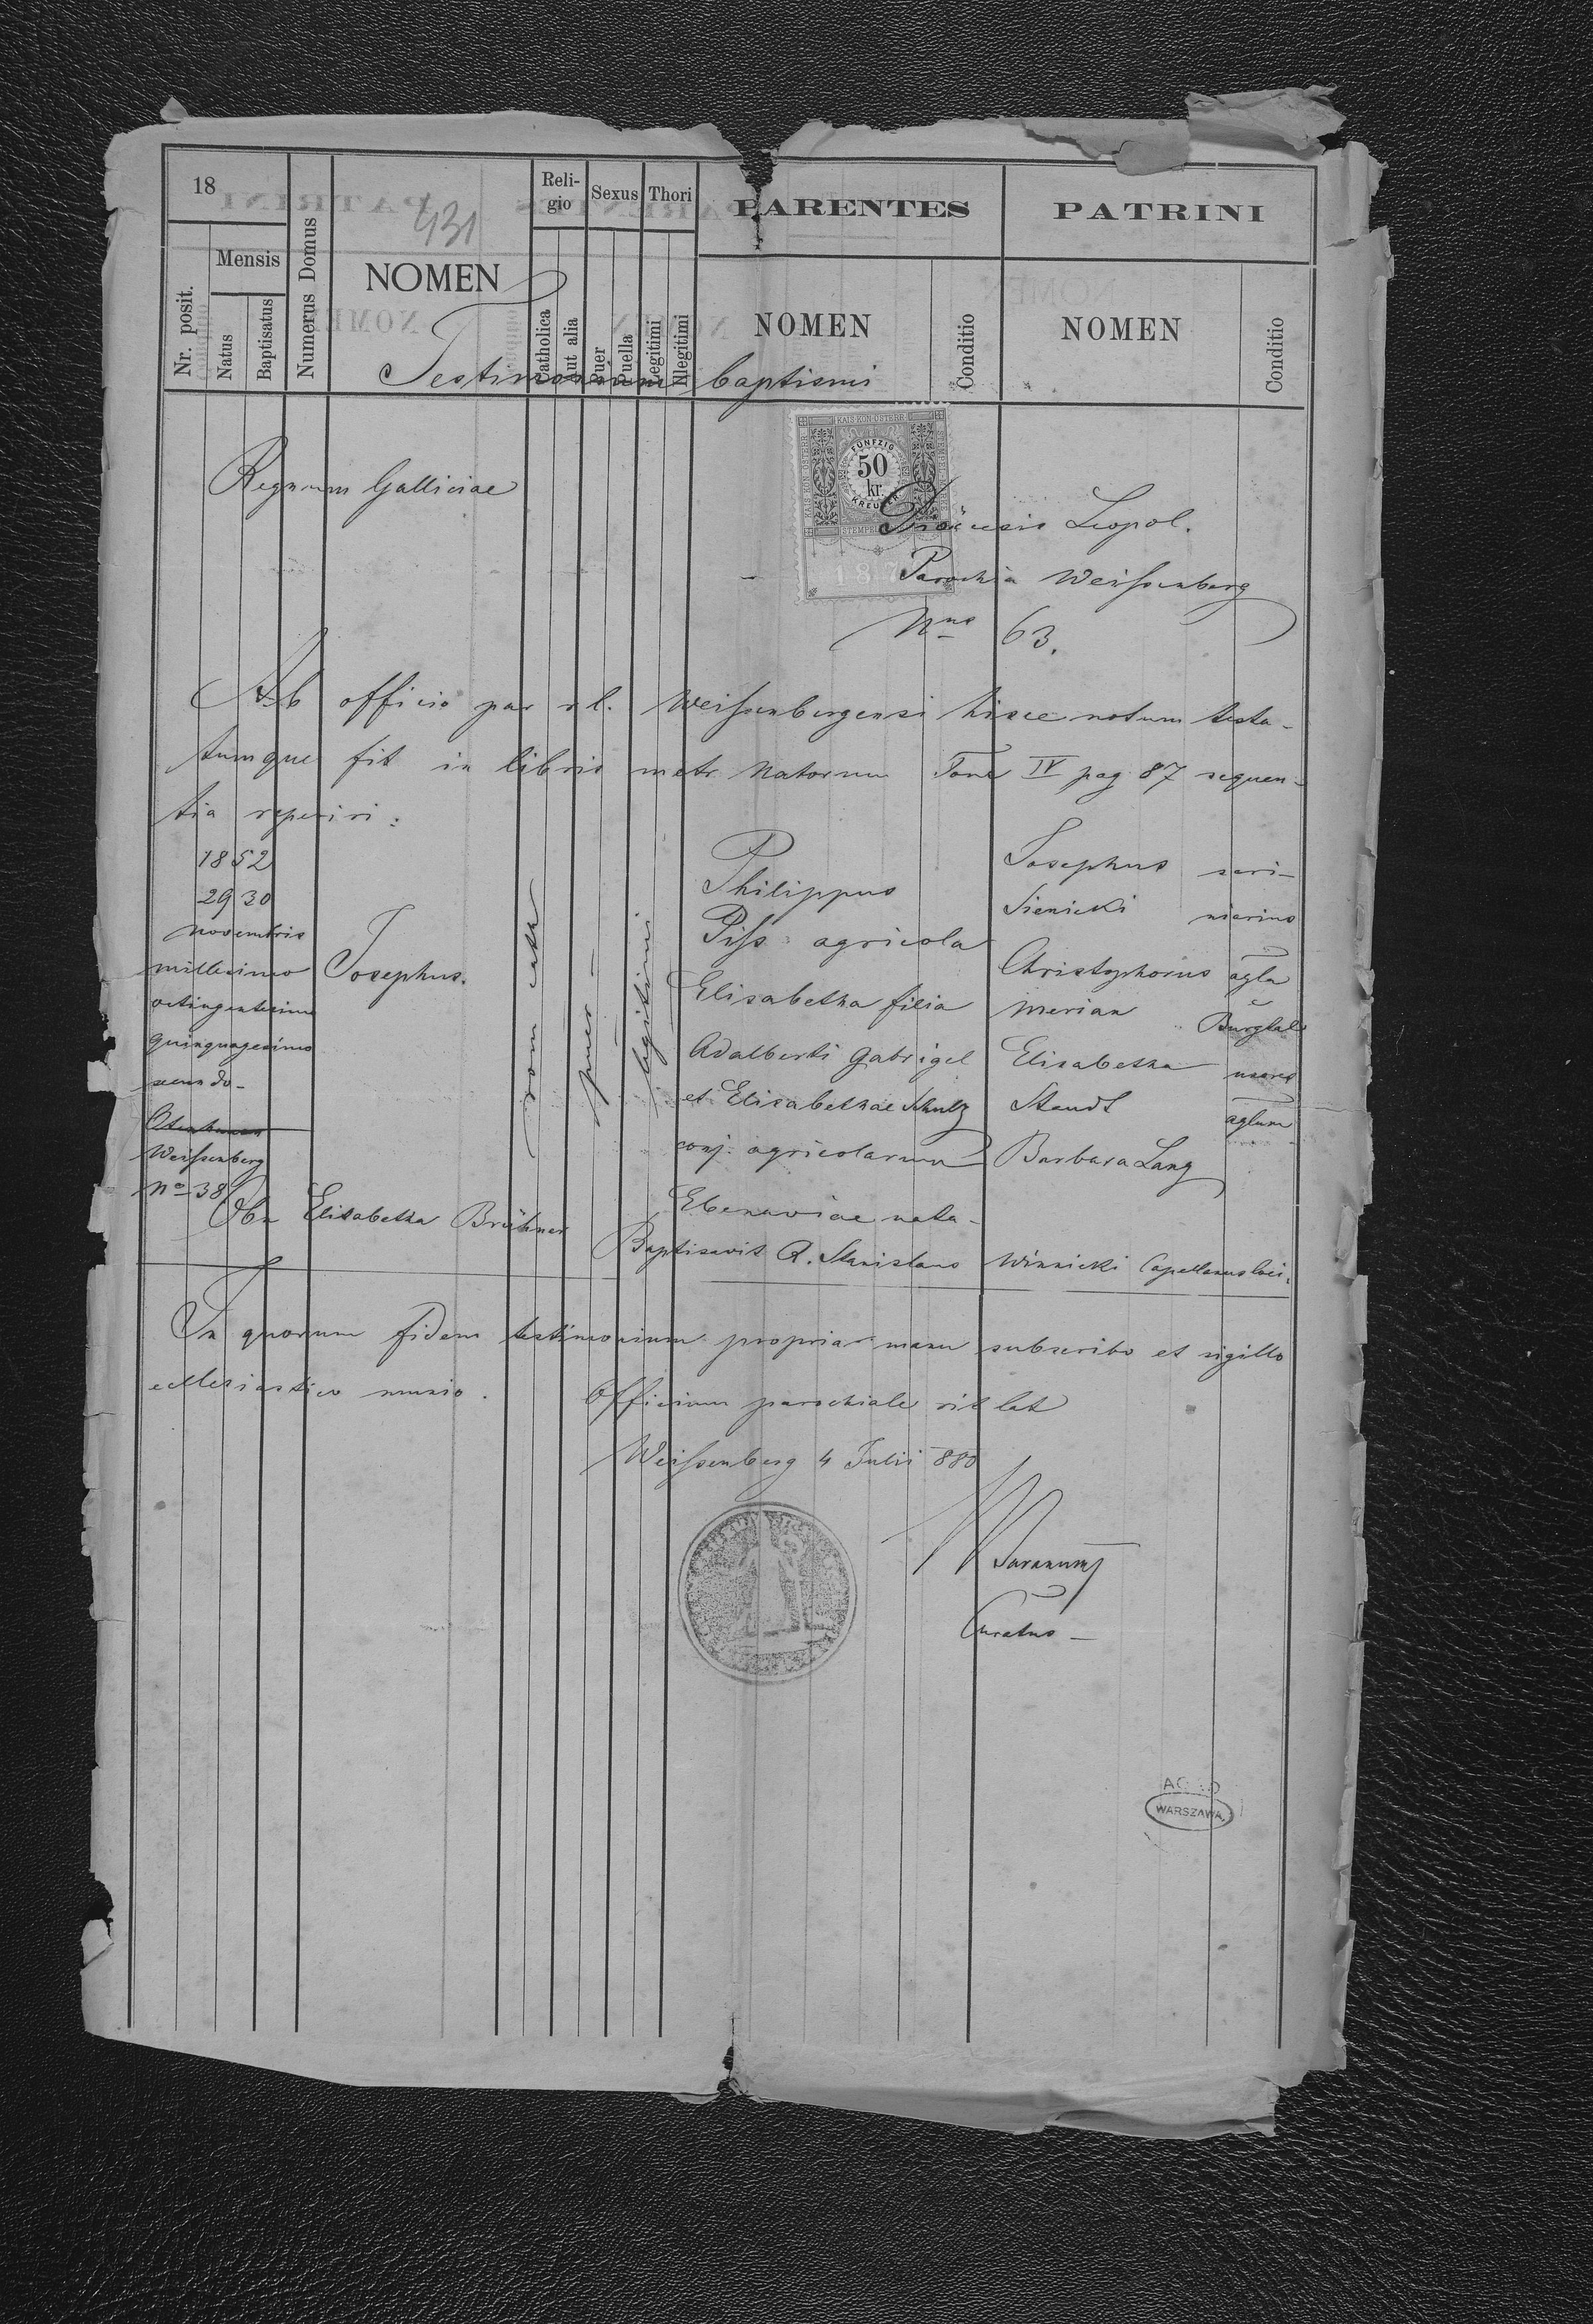 18
431
Nr. posit.
Mensis
Natus
Baptisatus
Numerus Domus
NOMEN
Religio
Catholica
aut alia
Sexus
Puer
Puella
Thori
Legitimi
Illegitimi
PARENTES
NOMEN
Conditio
PATRINI
NOMEN
Conditio
Testimonium baptismi
KAIS. KÖN. ÖSTERR.
FÜNFZIG
50
kr.
KREUZER
STEMPEL
187
Regnum Galliciae
Dioecesis Leopol.
Parochia Weißenberg
Nrus 63.
Ab officio par r. l. Weißenbergensi hisce notum testa-
tumque fit in libris metr Natorum Tom IV pag 87 sequen-
tia reperiri:
1852
29 30
Novembris
millesimo
octingentesimo
quinquagesimo
secundo-
Weißenberg
No 38
Josephus.
rom cath
puer -
legitimi
Philippus
Piß agricola
Elisabetha filia
Adalberti Gabrigel
et Elisabethae Schulz
conj. agricolarum
Ebenaviae nata-
Josephus
Sienicki
Christophorus agla
Merian
Elisabetha uxor
Staudt
Barbara Lang
Obx Elisabetha Brühner
Baptisavit R. Stanislaus Winnicki Capellanus loci.
In quorum fidem testimonium propria manu subscribo et sigillo
ecclesiastico munio.
Officium parochiale rit lat
Weißenberg 4 Julii 880
Curatus-
AGAD
WARSZAWA